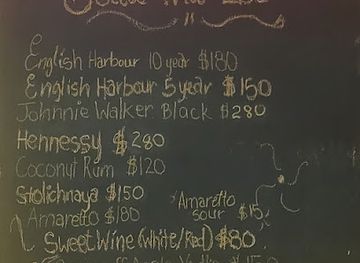 English Harbour 10 year $180
English Harbour 5 year $150
Johnnie Walker Black $280
Hennessy $280
Coconut Rum $120
Stolichnaya $150
Amaretto $180
Amaretto
sour $15
Sweet Wine (White/Red) $80